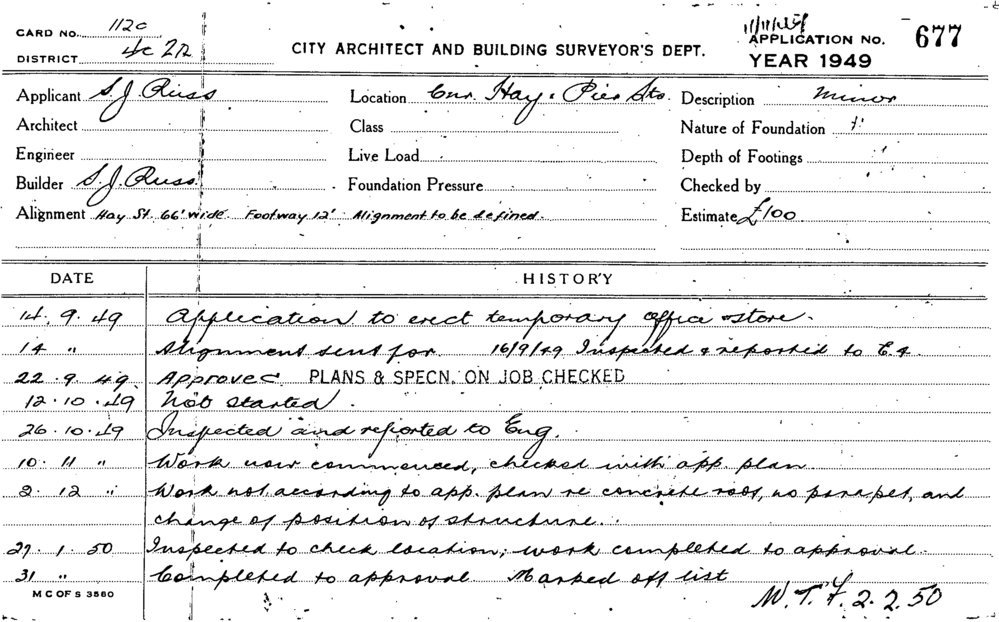 CARD No. 1120
DISTRICT 4c 2n
CITY ARCHITECT AND BUILDING SURVEYOR'S DEPT.
APPLICATION No. 677
YEAR 1949
Applicant S. J. Russ Location Cnr. Hay & Pier Sts. Description Minor
Architect Class Nature of Foundation
Engineer Live Load Depth of Footings
Builder S. J. Russ Foundation Pressure Checked by
Alignment Hay St. 66' wide Footway 12' Alignment to be defined. Estimate £100
DATE HISTORY
14. 9. 49 Application to erect temporary office & store.
14 " Alignment sent for 16/9/49 Inspected & reported to
22. 9. 49 Approved PLANS & SPECN. ON JOB CHECKED
12. 10. 49 Not started.
26. 10. 49 Inspected and reported to Eng.
10. 11 " Work now commenced, checked with app. plan
2. 12 " Work not according to app. plan re concrete roof, no parapet, and
change of position of structure.
27. 1. 50 Inspected to check location; work completed to approval.
31 " Completed to approval Marked off list
M C OF S 3580
W. T. F. 2. 2. 50